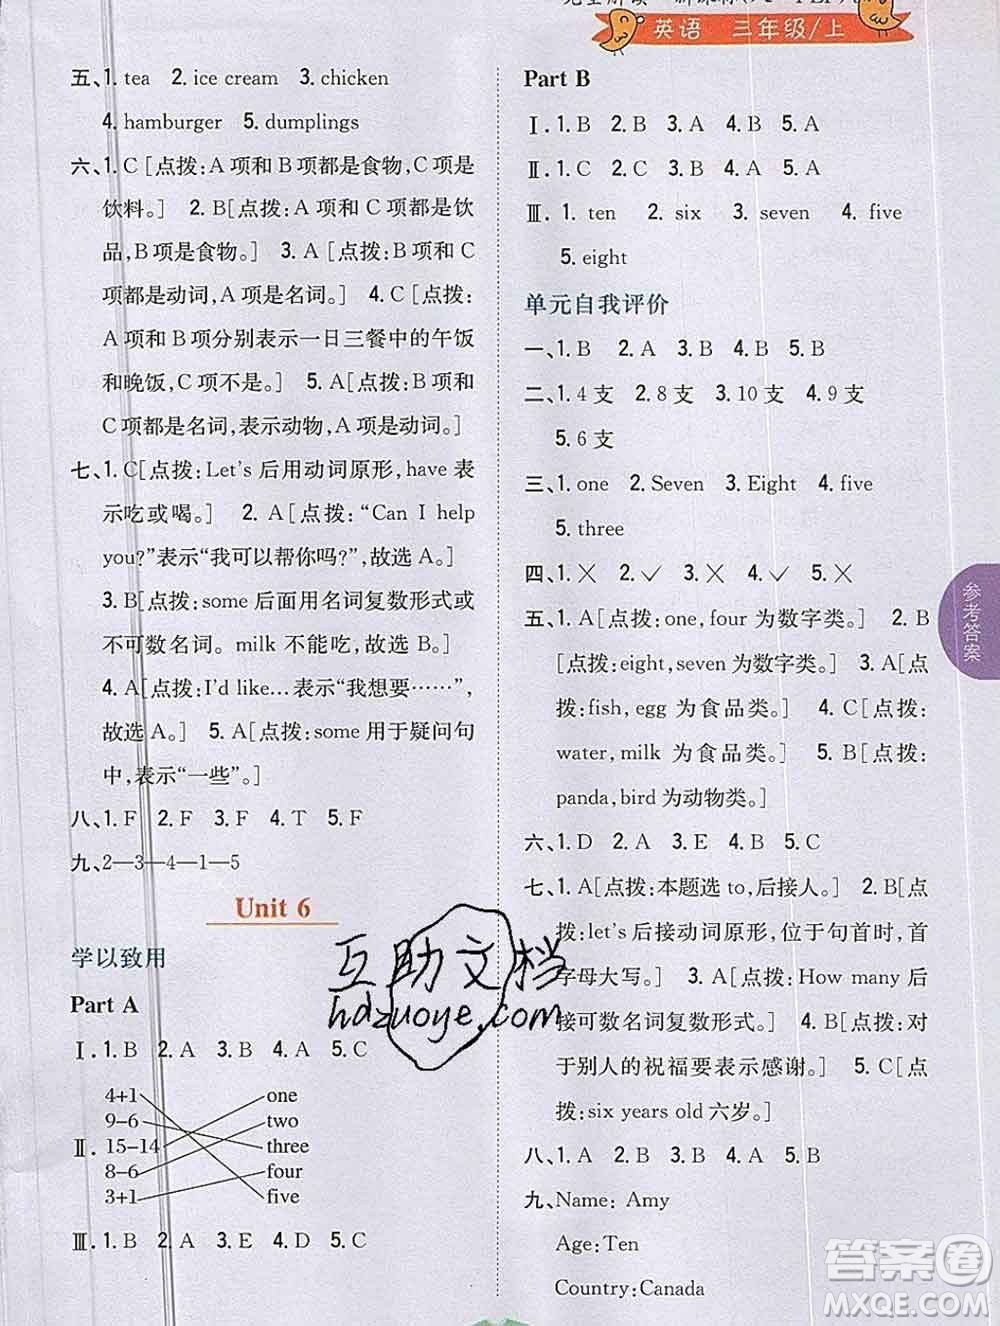 英语 三年级/上
五、1. tea 2. ice cream 3. chicken
4. hamburger 5. dumplings
六、1. C[点拨:A 项和 B 项都是食物,C 项是
饮料。] 2. B[点拨:A 项和 C 项都是饮
品,B 项是食物。] 3. A[点拨:B 项和 C
项都是动词,A 项是名词。] 4. C[点拨:
A 项和 B 项分别表示一日三餐中的午饭
和晚饭,C 项不是。] 5. A[点拨:B 项和
C 项都是名词,表示动物,A 项是动词。]
七、1. C[点拨:Let's 后用动词原形,have 表
示吃或喝。] 2. A[点拨:“Can I help
you?”表示“我可以帮你吗?”,故选 A。]
3. B[点拨:some 后面用名词复数形式或
不可数名词。milk 不能吃,故选 B。]
4. A[点拨:I'd like…表示“我想要……”,
故选 A。] 5. A[点拨:some 用于疑问句
中,表示“一些”。]
八、1. F 2. F 3. F 4. T 5. F
九、2—3—4—1—5
Unit 6
学以致用
Part A
Ⅰ. 1. B 2. A 3. B 4. A 5. C
Ⅱ.
4+1 one
9-6 two
15-14 three
8-6 four
3+1 five
Ⅲ. 1. B 2. A 3. E 4. D 5. C
Part B
Ⅰ. 1. B 2. B 3. A 4. B 5. A
Ⅱ. 1. C 2. B 3. A 4. B 5. A
Ⅲ. 1. ten 2. six 3. seven 4. five
5. eight
单元自我评价
一、1. B 2. A 3. B 4. B 5. B
二、1. 4 支 2. 8 支 3. 10 支 4. 9 支
5. 6 支
三、1. one 2. Seven 3. Eight 4. five
5. three
四、1. ✕ 2. ✓ 3. ✕ 4. ✓ 5. ✕
五、1. A[点拨:one,four 为数字类。] 2. B
[点拨:eight,seven 为数字类。] 3. A[点
拨:fish,egg 为食品类。] 4. C[点拨:
water,milk 为食品类。] 5. B[点拨:
panda,bird 为动物类。]
六、1. D 2. A 3. E 4. B 5. C
七、1. A[点拨:本题选 to,后接人。] 2. B[点
拨:let's 后接动词原形,位于句首时,首
字母大写。] 3. A[点拨:How many 后
接可数名词复数形式。] 4. B[点拨:对
于别人的祝福要表示感谢。] 5. C[点
拨:six years old 六岁。]
八、1. A 2. B 3. B 4. A 5. B
九、Name: Amy
Age:Ten
Country:Canada
参考答案
互助文档
hdzuoye.com
答案圈
MXQE.COM